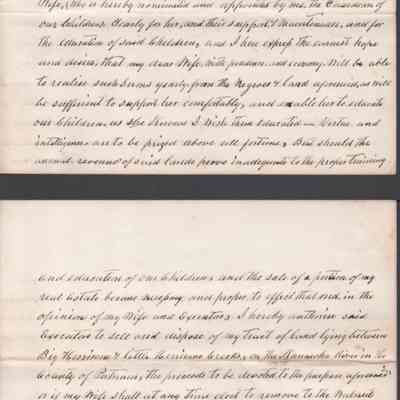 Wife, who is hereby nominated and appointed by me, the Guardian of
our Children. Yearly for her, and their support & Maintenance, and for
the Education of said Children, and I here express the earnest hope
and desire, that my dear Wife, with prudence and economy will be able
to realise such sums yearly from the Negroes & land aforesaid, as will
be sufficient to support her comfortably, and enable her to educate
our Children, as she knows I wish them educated — Virtue and
intelligence are to be prized above all fortune, But should the
annual revenue of said lands prove inadequate to the proper training
and education of our Children, and the sale of a portion of my
real Estate become necessary and proper, to effect that end, in the
opinion of my Wife and Executor, I hereby authorise said
Executor to sell and dispose of my tract of land lying between
Big & little creeks, on the Kanawha River in the
County of Putnam, the proceeds to be devoted to the purpose aforesaid
or if my Wife shall at any time elect to remove to the